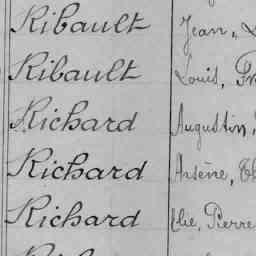 Ribault Jean,
Ribault Louis,
Richard Augustin,
Richard Arsène,
Richard Elie, Pierre